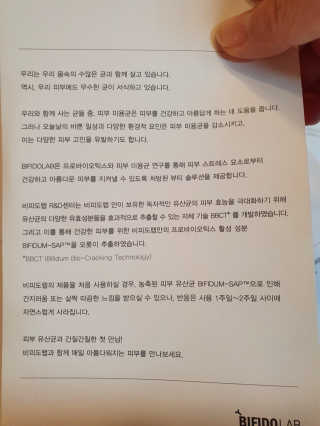 우리는 우리 몸속의 수많은 균과 함께 살고 있습니다.
역시, 우리 피부에도 무수한 균이 서식하고 있습니다.
우리와 함께 사는 균들 중, 피부 미용균은 피부를 건강하고 아름답게 하는 데 도움을 줍니다.
그러나 오늘날의 바쁜 일상과 다양한 환경적 요인은 피부 미용균을 감소시키고,
이는 다양한 피부 고민을 유발하기도 합니다.
BIFIDOLAB은 프로바이오틱스와 피부 미용균 연구를 통해 피부 스트레스 요소로부터
건강하고 아름다운 피부를 지켜낼 수 있도록 처방된 뷰티 솔루션을 제공합니다.
비피도랩 R&D센터는 비피도랩 만이 보유한 독자적인 유산균의 피부 효능을 극대화하기 위해
유산균의 다양한 유효성분들을 효과적으로 추출할 수 있는 자체 기술 BBCT*를 개발하였습니다.
그리고 이를 통해 건강한 피부를 위한 비피도랩만의 프로바이오틱스 활성 성분
BIFIDUM-SAP™을 오롯이 추출하였습니다.
*BBCT (Bifidum Bio-Cracking Technology)
비피도랩의 제품을 처음 사용하실 경우, 농축된 피부 유산균 BIFIDUM-SAP™으로 인해
간지러움 또는 살짝 따끔한 느낌을 받으실 수 있으나, 반응은 사용 1주일~2주일 사이에
자연스럽게 사라집니다.
피부 유산균과 간질간질한 첫 만남!
비피도랩과 함께 매일 아름다워지는 피부를 만나보세요.
BIFIDOLAB